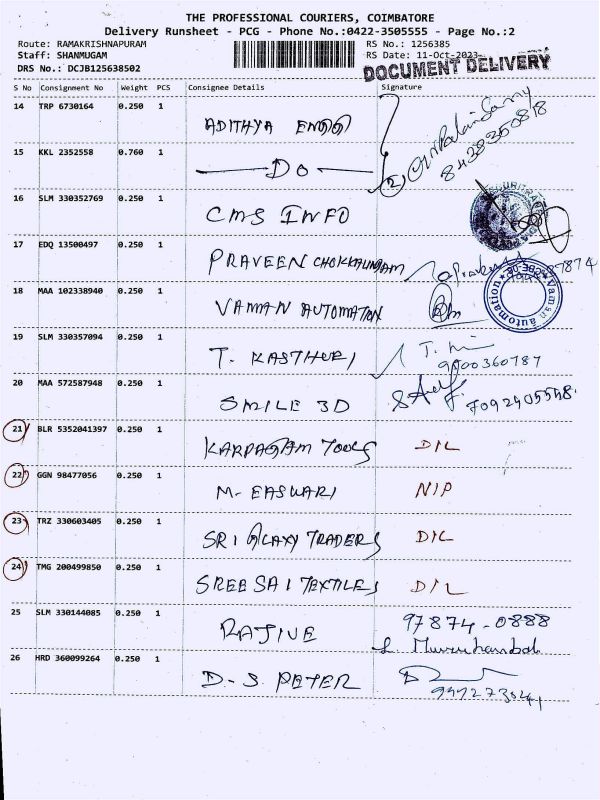 THE PROFESSIONAL COURIERS, COIMBATORE
Delivery Runsheet - PCG - Phone No.:0422-3505555 - Page No.:2
Route: RAMAKRISHNAPURAM
RS No.: 1256385
Staff: SHANMUGAM
RS Date: 11-Oct-2023
DRS No.: DCJB125638502
DOCUMENT DELIVERY
S No Consignment No Weight PCS Consignee Details Signature
14 TRP 6730164 0.250 1 ADITHYA ENGG
8438350818
15 KKL 2352558 0.760 1 Do
2
16 SLM 330352769 0.250 1 CMS INFO
17 EDQ 13500497 0.250 1 PRAVEEN CHOKKALINGAM
18 MAA 102338940 0.250 1 VAMAN AUTOMATION
Vaman automation
19 SLM 330357094 0.250 1 T. KASTHURI
9500360787
20 MAA 572587948 0.250 1 SMILE 3D
7092405548
21 BLR 5352041397 0.250 1 KARPAGAM TOOLS D/L
22 GGN 98477056 0.250 1 M- EASWARI N/P
23 TRZ 330603405 0.250 1 SRI GLAXY TRADERS D/L
24 TMG 200499850 0.250 1 SREE SAI TEXTILES D/L
25 SLM 330144085 0.250 1 RAJIVE 97874-0888
26 HRD 360099264 0.250 1 D-S PETER